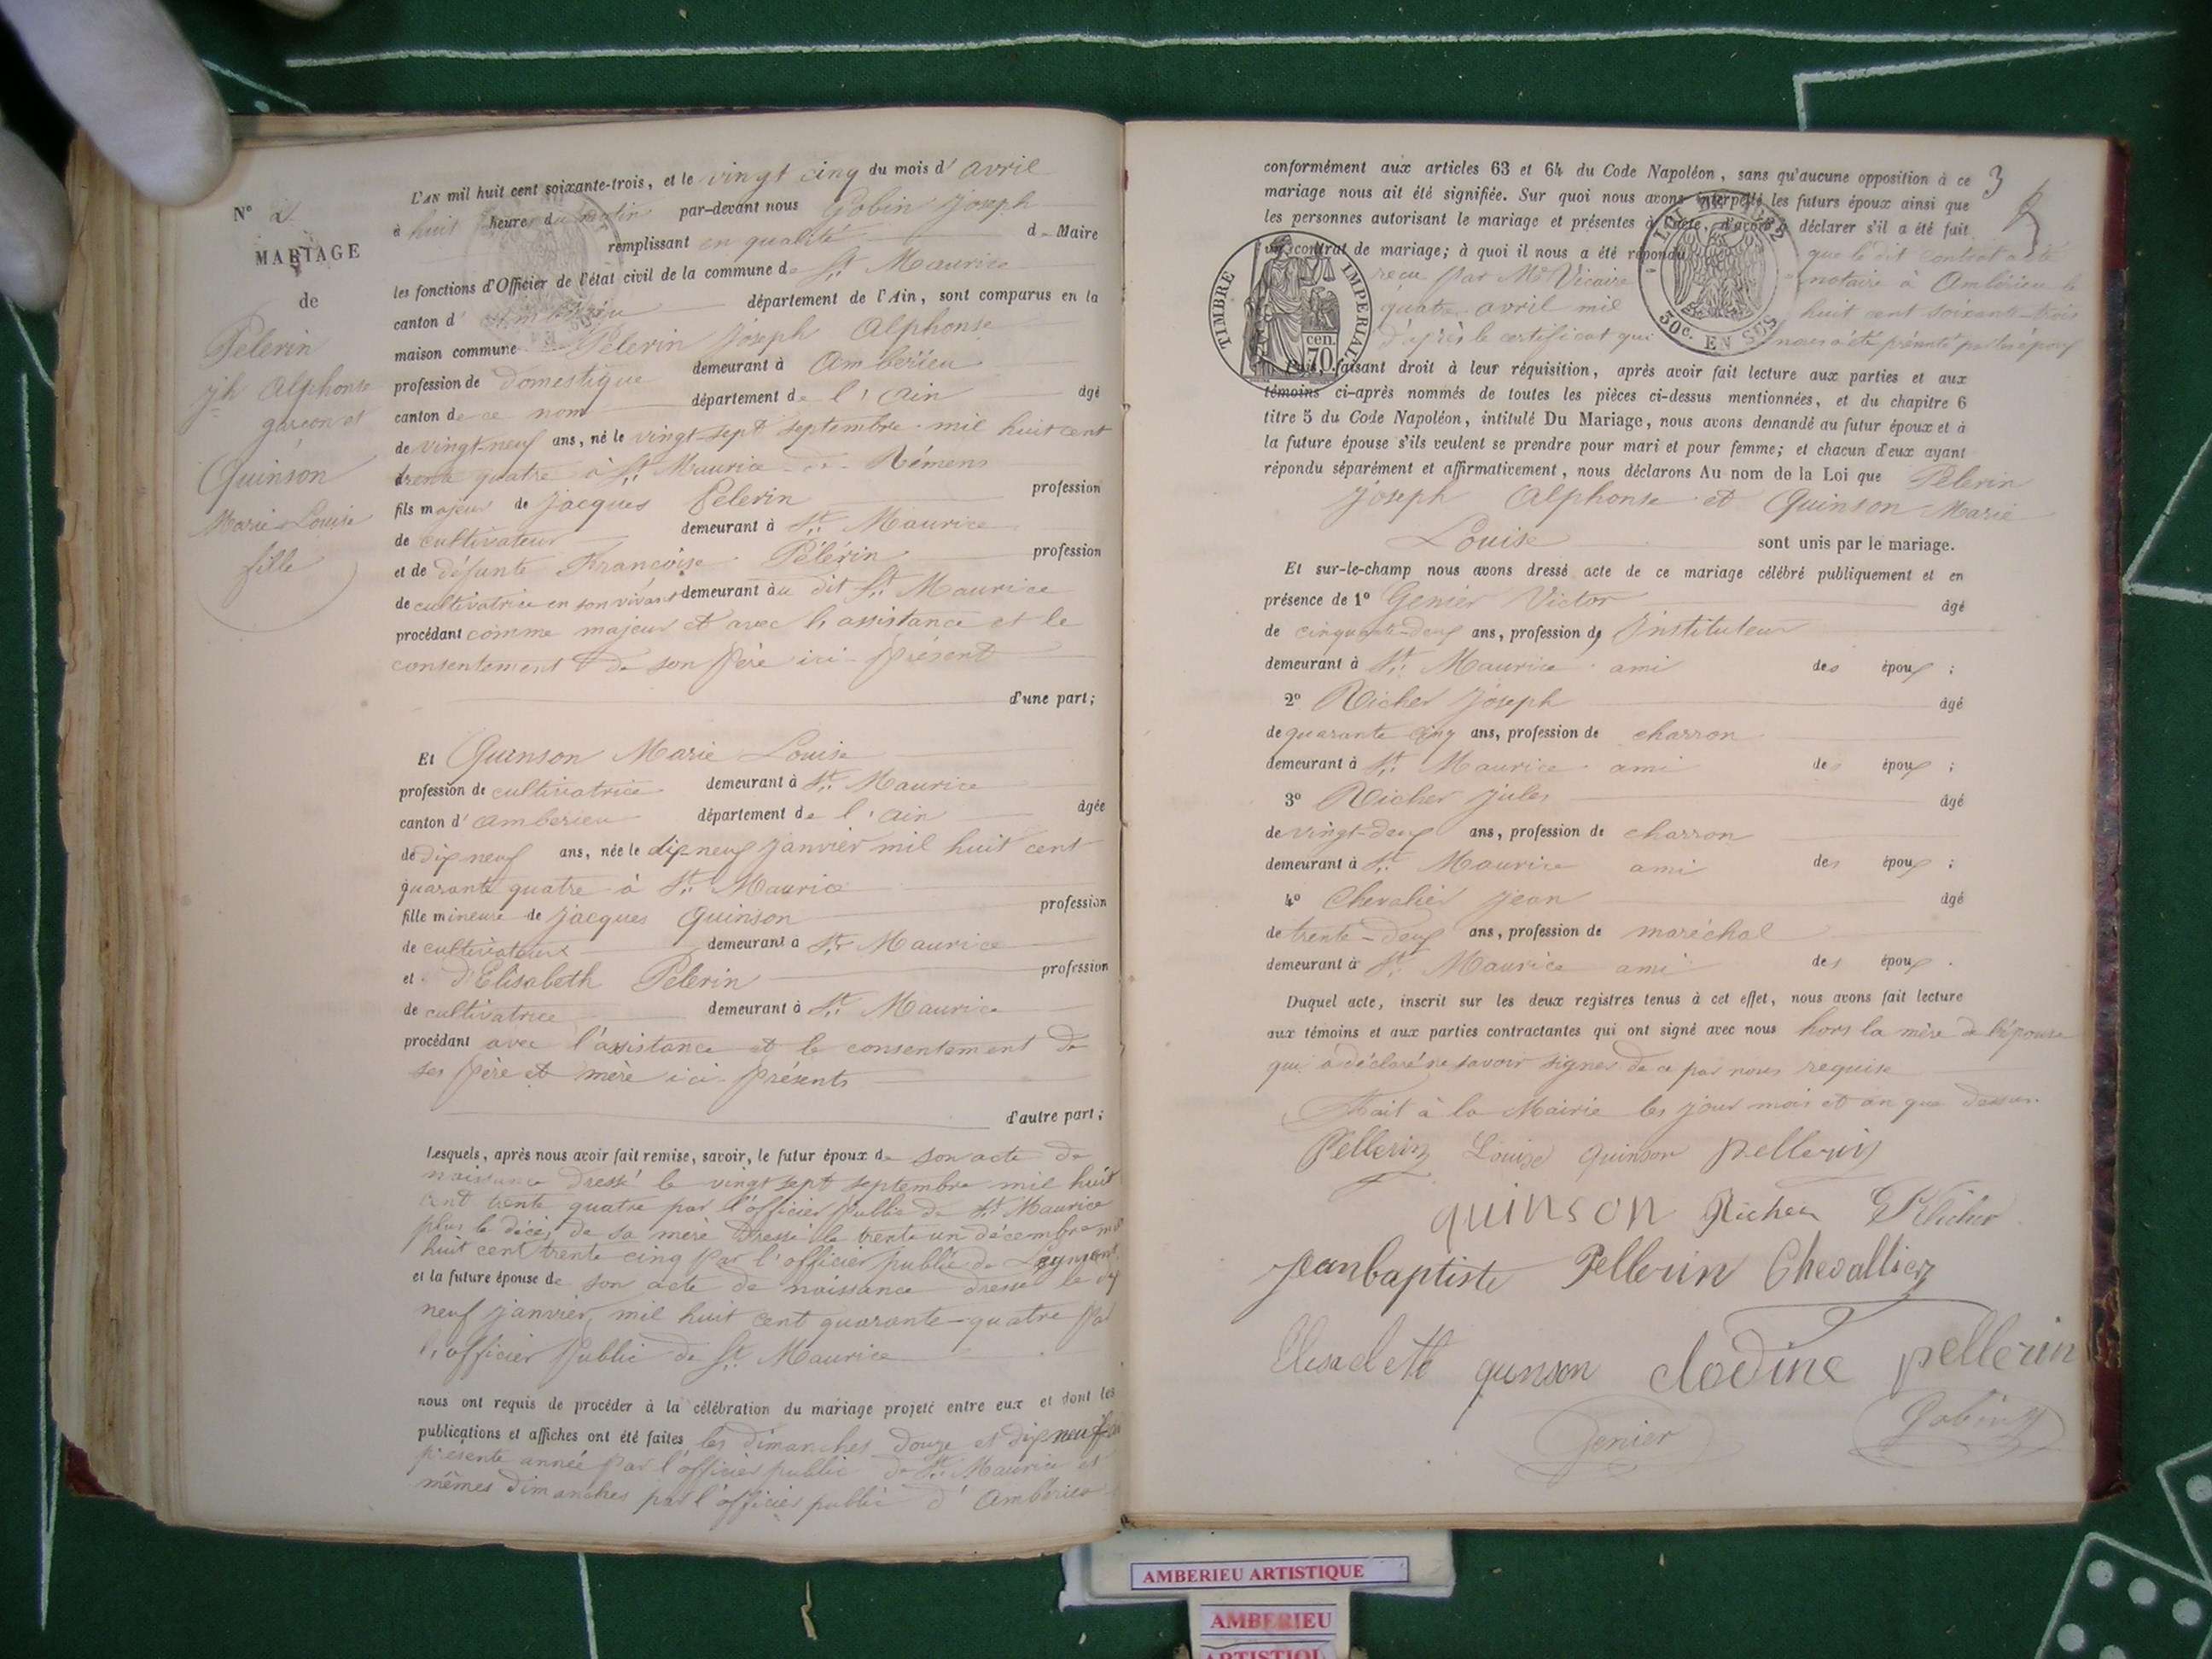 N° 2
MARIAGE
de
Pelerin
jh Alphonse
garçon et
Quinson
Marie Louise
fille
L'AN mil huit cent soixante-trois, et le vingt cinq du mois d' avril
à huit heure du matin par-devant nous Gobin Joseph
remplissant en qualité de Maire
les fonctions d'Officier de l'état civil de la commune de St Maurice
canton d' département de l'Ain, sont comparus en la
maison commune Pelerin Joseph Alphonse
profession de domestique demeurant à Ambérieu
canton de ce nom département de l'Ain âgé
de vingt-neuf ans, né le vingt-sept septembre mil huit cent
trente quatre à St Maurice de Rémens
fils majeur de Jacques Pelerin profession
de cultivateur demeurant à St Maurice
et de défunte Françoise Pélérin profession
de cultivatrice en son vivant demeurant au dit St Maurice
procédant comme majeur et avec l'assistance et le
consentement de son père ici présent
d'une part;
Et Quinson Marie Louise
profession de cultivatrice demeurant à St Maurice
canton d' Amberieu département de l'Ain âgée
de dix neuf ans, née le dix-neuf janvier mil huit cent
quarante quatre à St Maurice
fille mineure de Jacques Quinson profession
de cultivateur demeurant à St Maurice
et d'Elisabeth Pelerin profession
de cultivatrice demeurant à St Maurice
procédant avec l'assistance et le consentement de
ses père et mère ici présents
d'autre part;
Lesquels, après nous avoir fait remise, savoir, le futur époux de son acte de
naissance dressé le vingt sept septembre mil huit
cent trente quatre par l'officier public de St Maurice
plus le décès de sa mère dressé le trente un décembre mil
huit cent trente cinq par l'officier public de
et la future épouse de son acte de naissance dressé le dix
neuf janvier mil huit cent quarante-quatre par
l'officier public de St Maurice
nous ont requis de procéder à la célébration du mariage projeté entre eux et dont les
publications et affiches ont été faites les dimanches douze et dix neuf
présente année par l'officier public de St Maurice et
mêmes dimanches par l'officier public d' Ambérieu
3
conformément aux articles 63 et 64 du Code Napoléon, sans qu'aucune opposition à ce
mariage nous ait été signifiée. Sur quoi nous avons interpellé les futurs époux ainsi que
les personnes autorisant le mariage et présentes à l'acte, d'avoir à déclarer s'il a été fait
un contrat de mariage; à quoi il nous a été répondu que le dit contrat a été
reçu par Me Vicaire notaire à Ambérieu le
quatre avril mil huit cent soixante-trois
d'après le certificat qui nous a été présenté par les époux
TIMBRE IMPERIAL
70 cen.
LOI DE 1862
50c. EN SUS
Puis, faisant droit à leur réquisition, après avoir fait lecture aux parties et aux
témoins ci-après nommés de toutes les pièces ci-dessus mentionnées, et du chapitre 6
titre 5 du Code Napoléon, intitulé Du Mariage, nous avons demandé au futur époux et à
la future épouse s'ils veulent se prendre pour mari et pour femme; et chacun d'eux ayant
répondu séparément et affirmativement, nous déclarons Au nom de la Loi que Pelerin
Joseph Alphonse et Quinson Marie
Louise sont unis par le mariage.
Et sur-le-champ nous avons dressé acte de ce mariage célébré publiquement et en
présence de 1° Genier Victor âgé
de cinquante-deux ans, profession d' Instituteur
demeurant à St Maurice ami des époux ;
2° Richer Joseph âgé
de quarante cinq ans, profession de charron
demeurant à St Maurice ami des époux ;
3° Richer Jules âgé
de vingt-deux ans, profession de charron
demeurant à St Maurice ami des époux ;
4° Chevalier Jean âgé
de trente-deux ans, profession de maréchal
demeurant à St Maurice ami des époux .
Duquel acte, inscrit sur les deux registres tenus à cet effet, nous avons fait lecture
aux témoins et aux parties contractantes qui ont signé avec nous hors la mère de l'épouse
qui a déclaré ne savoir signer de ce par nous requise
Fait à la Mairie les jour mois et an que dessus
Pellerin Louise Quinson pellerin
quinson Richer Richer
jeanbaptiste Pellerin Chevallier
qunson clodine pellerin
Genier Gobin
AMBERIEU ARTISTIQUE
AMBERIEU
ARTISTIQU